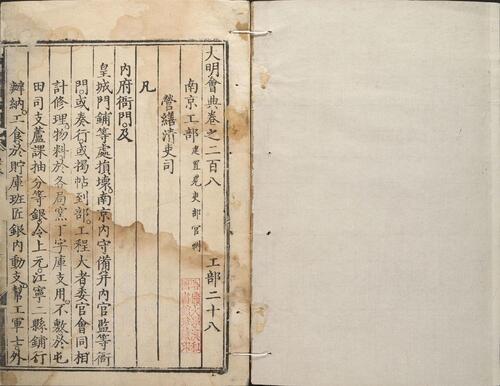 大明會典卷之二百八
工部二十八
南京工部建置見吏部官制
營繕清吏司
凡
內府衙門及
皇城門鋪等處損壞南京內守備并內官監等衙
門或奏行或揭帖到部工程大者委官會同相
計修理物料於各局窯丁字庫支用不敷於屯
田司支蘆課抽分等銀令上元江寧二縣鋪行
辦納工食於貯庫班匠銀內動支幫工軍士外